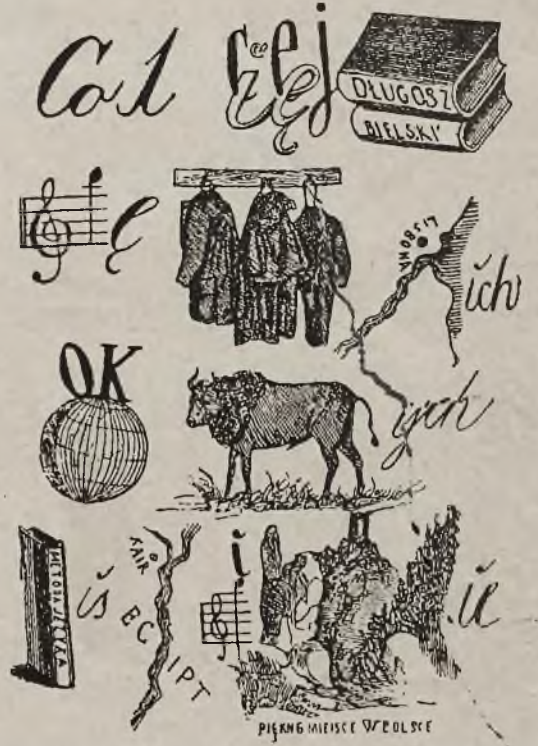 Co 1
częj
DŁUGOSZ
BIELSKI
ę
LISBONA
ich
OK
ych
METODA JĘZYKA
iś
KAIR
EGIPT
i
ie
PIĘKNE MIEJSCE W POLSCE